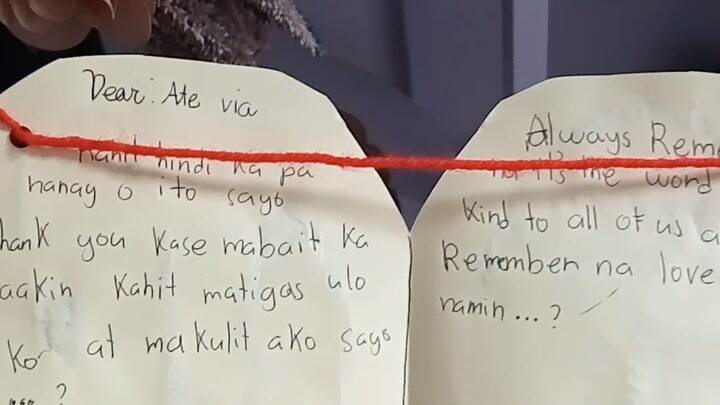 Dear: Ate via
hindi ka pa
nanay o ito sayo
hank you kase mabait ka
aakin kahit matigas ulo
ko at makulit ako sayo
?
Always Rem
it's the word
Kind to all of us a
Remember na love
namin...?